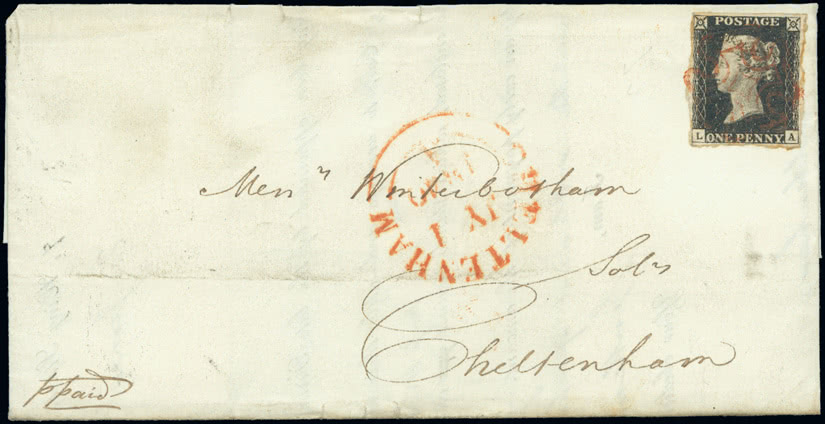 POSTAGE
L ONE PENNY A
CHELTENHAM
JY 1
Messrs Winterbotham
Solrs
Cheltenham
ppaid